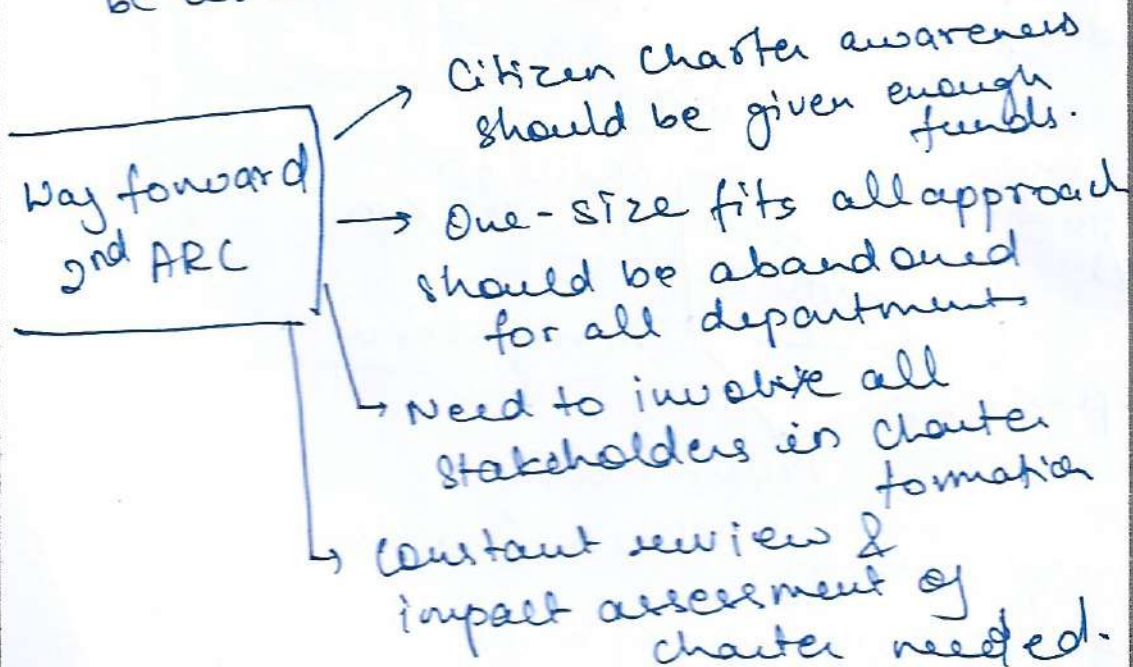 be
Citizen Charter awareness
should be given enough
funds.
Way forward
2nd ARC
One-size fits all approach
should be abandoned
for all departments
Need to involve all
stakeholders in charter
formation
Constant review &
impact assessment of
charter needed.